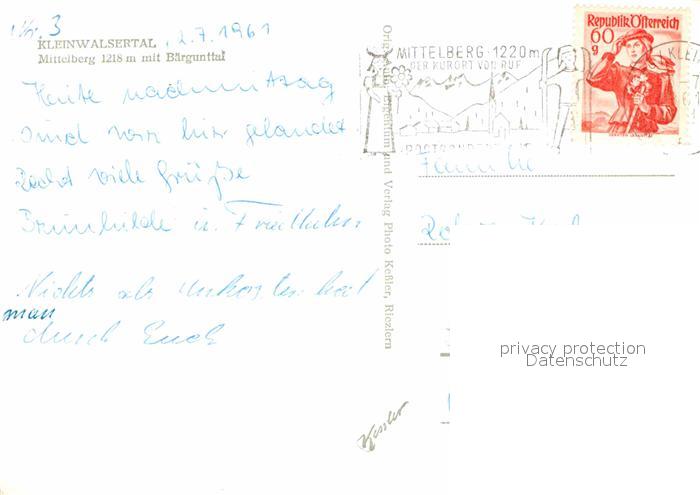 Nr. 3
2.7.1961
KLEINWALSERTAL
Mittelberg 1218 m mit Bärgunttal
Heute nachmittag
sind wir hier gelandet
Recht viele Grüße
Brunhilde u. Friedhelm
Nichts als Unkosten hat
man
durch Euch
Original-Eigentum und Verlag Photo Keßler, Riezlern
Kessler
MITTELBERG · 1220m
DER KURORT VON RUF
Republik Österreich
60
g
Familie
privacy protection
Datenschutz